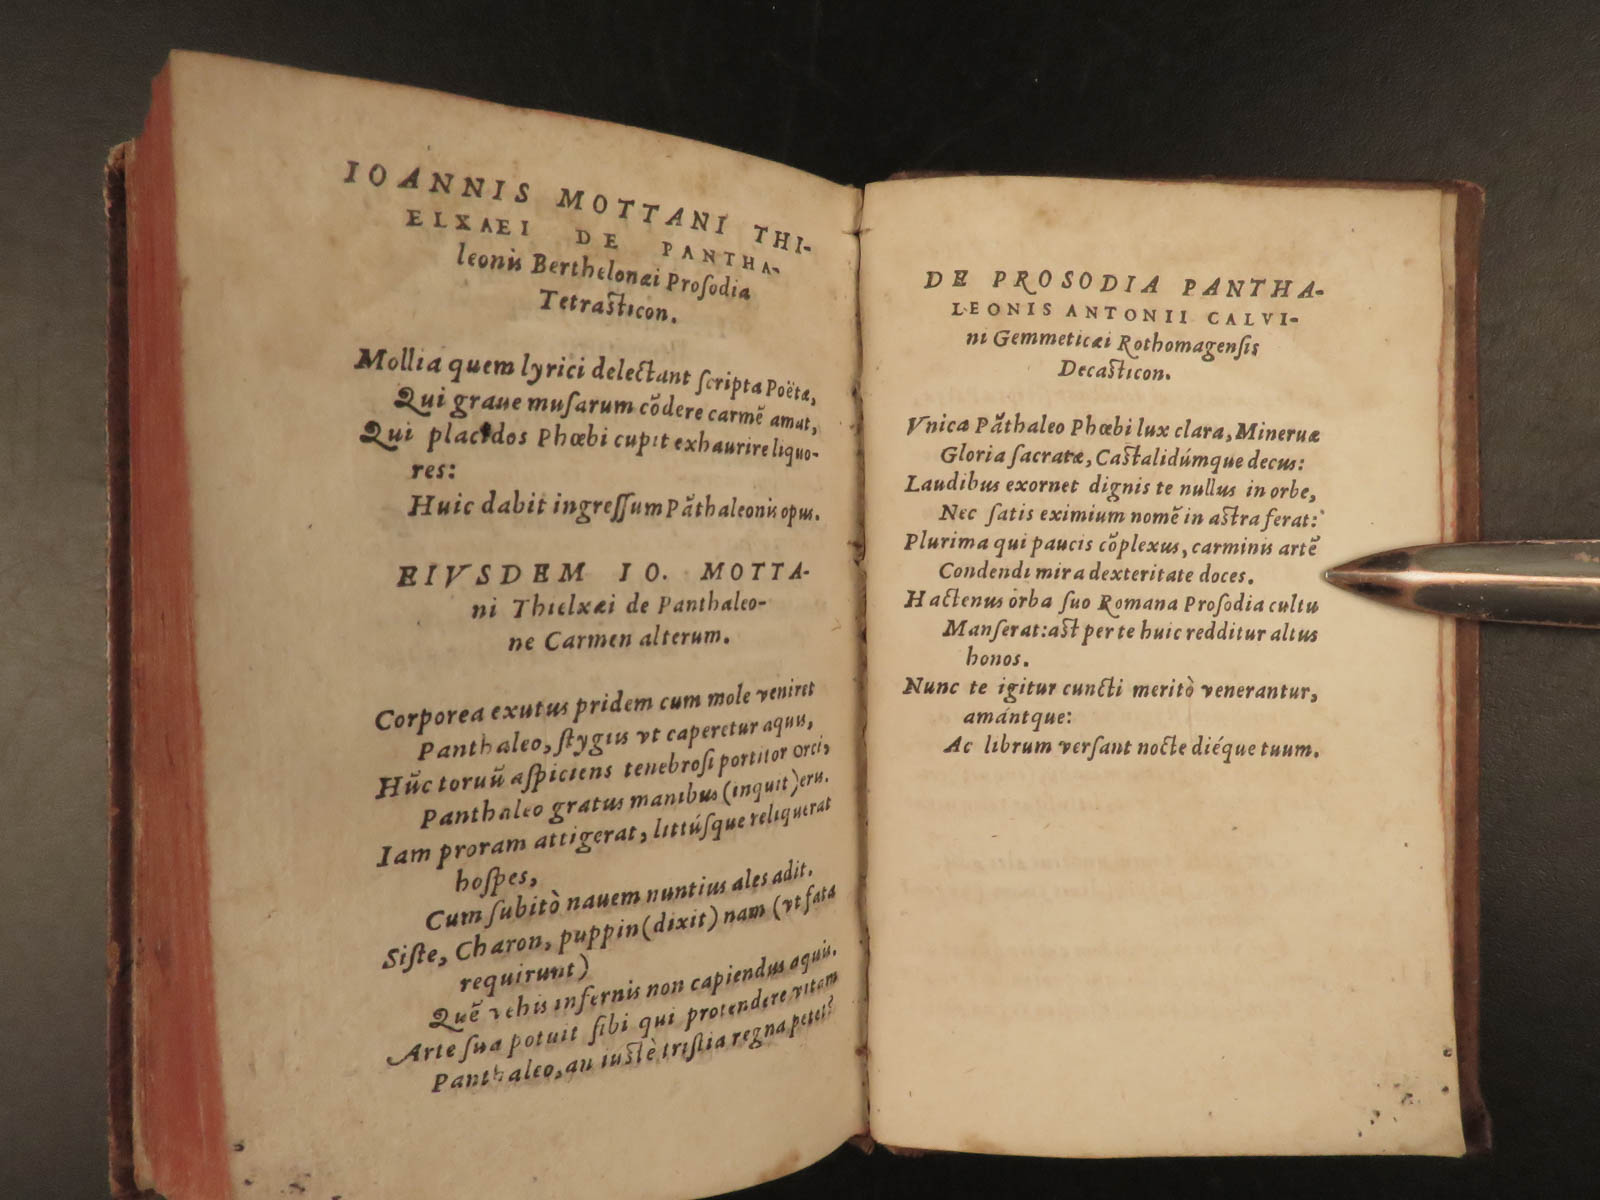 IOANNIS MOTTANI THI-
ELXAEI DE PANTHA-
leonis Berthelonæi Prosodia
Tetrasticon.
Mollia quem lyrici delectant scripta Poëtæ,
Qui graue musarum cōdere carmē amat,
Qui placidos Phœbi cupit exhaurire liquo-
res:
Huic dabit ingressum Pāthaleonis opus.
EIVSDEM IO. MOTTA-
ni Thielxæi de Panthaleo-
ne Carmen alterum.
Corporea exutus pridem cum mole veniret
Panthaleo, stygiis vt caperetur aquis,
Hūc toruū aspiciens tenebrosi portitor Orci,
Panthaleo gratus manibus (inquit) eris.
Iam proram attigerat, littúsque reliquerat
hospes,
Cum subitò nauem nuntius ales adit.
Siste, Charon, puppin (dixit) nam (vt fata
requirunt)
Quē vehis infernis non capiendus aquis.
Arte sua potuit sibi qui protendere vitam
Panthaleo, an iustè tristia regna petet?
DE PROSODIA PANTHA-
LEONIS ANTONII CALVI-
ni Gemmeticæi Rothomagensis
Decasticon.
Vnica Pāthaleo Phœbi lux clara, Mineruæ
Gloria sacratæ, Castalidúmque decus:
Laudibus exornet dignis te nullus in orbe,
Nec satis eximium nomē in astra ferat:
Plurima qui paucis cōplexus, carminis artē
Condendi mira dexteritate doces.
Hactenus orba suo Romana Prosodia cultu
Manserat: ast per te huic redditur altus
honos.
Nunc te igitur cuncti meritò venerantur,
amántque:
Ac librum versant nocte diéque tuum.